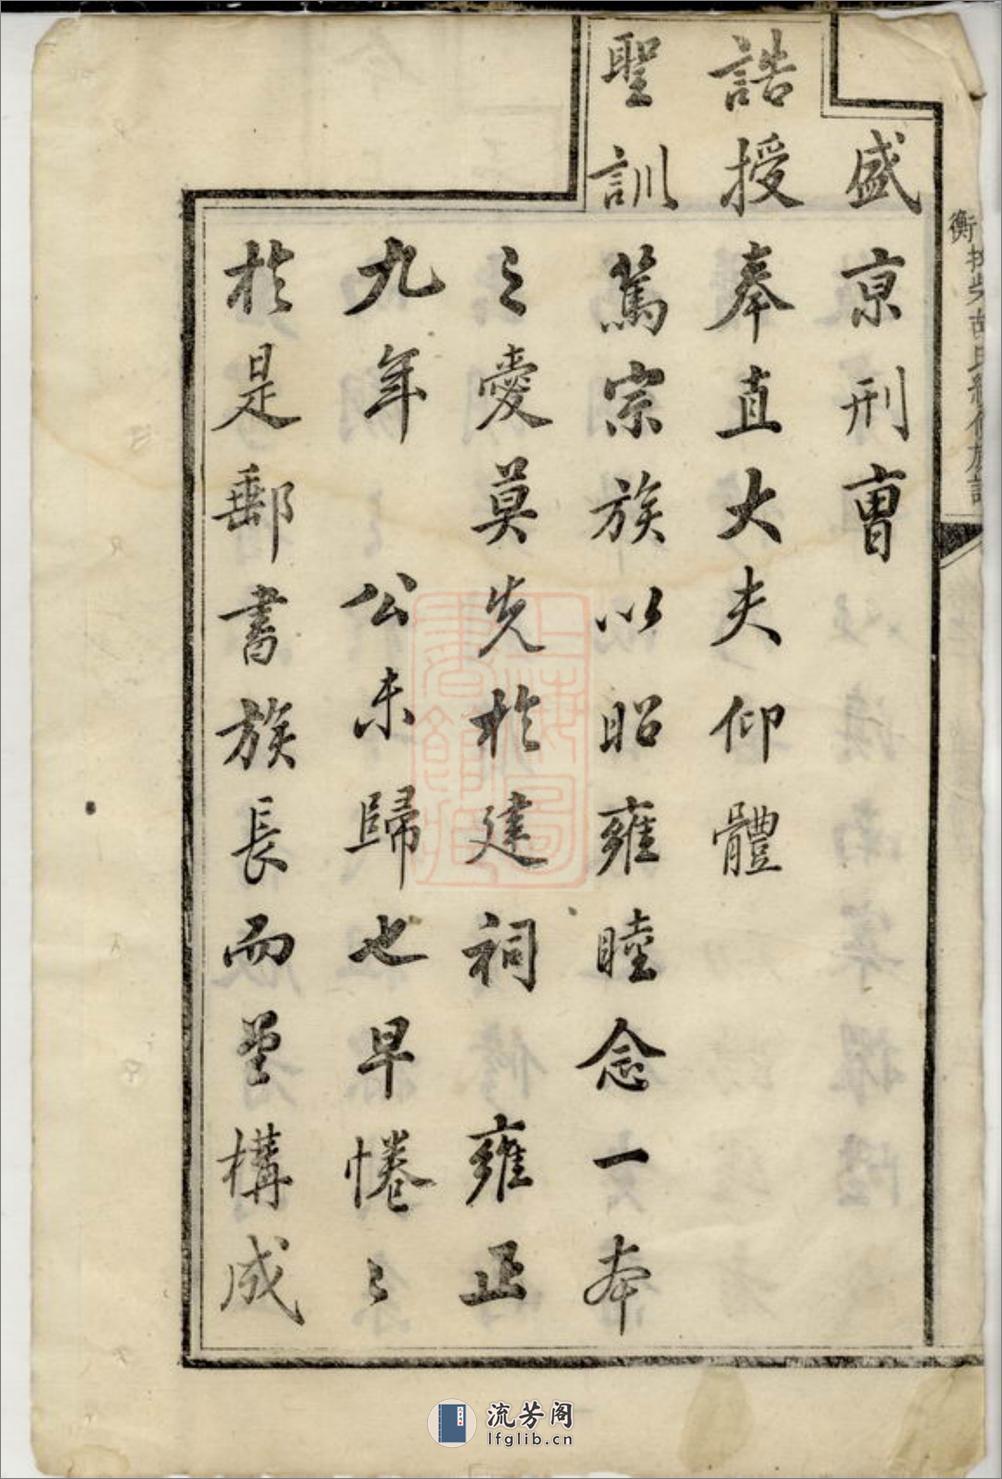 盛京刑曹
誥授奉直大夫仰體
聖訓篤宗族以昭雍睦念一本
之愛莫先於建祠雍正
九年公未歸也早惓〻
於是郵書族長而堂構成
流芳阁
lfglib.cn